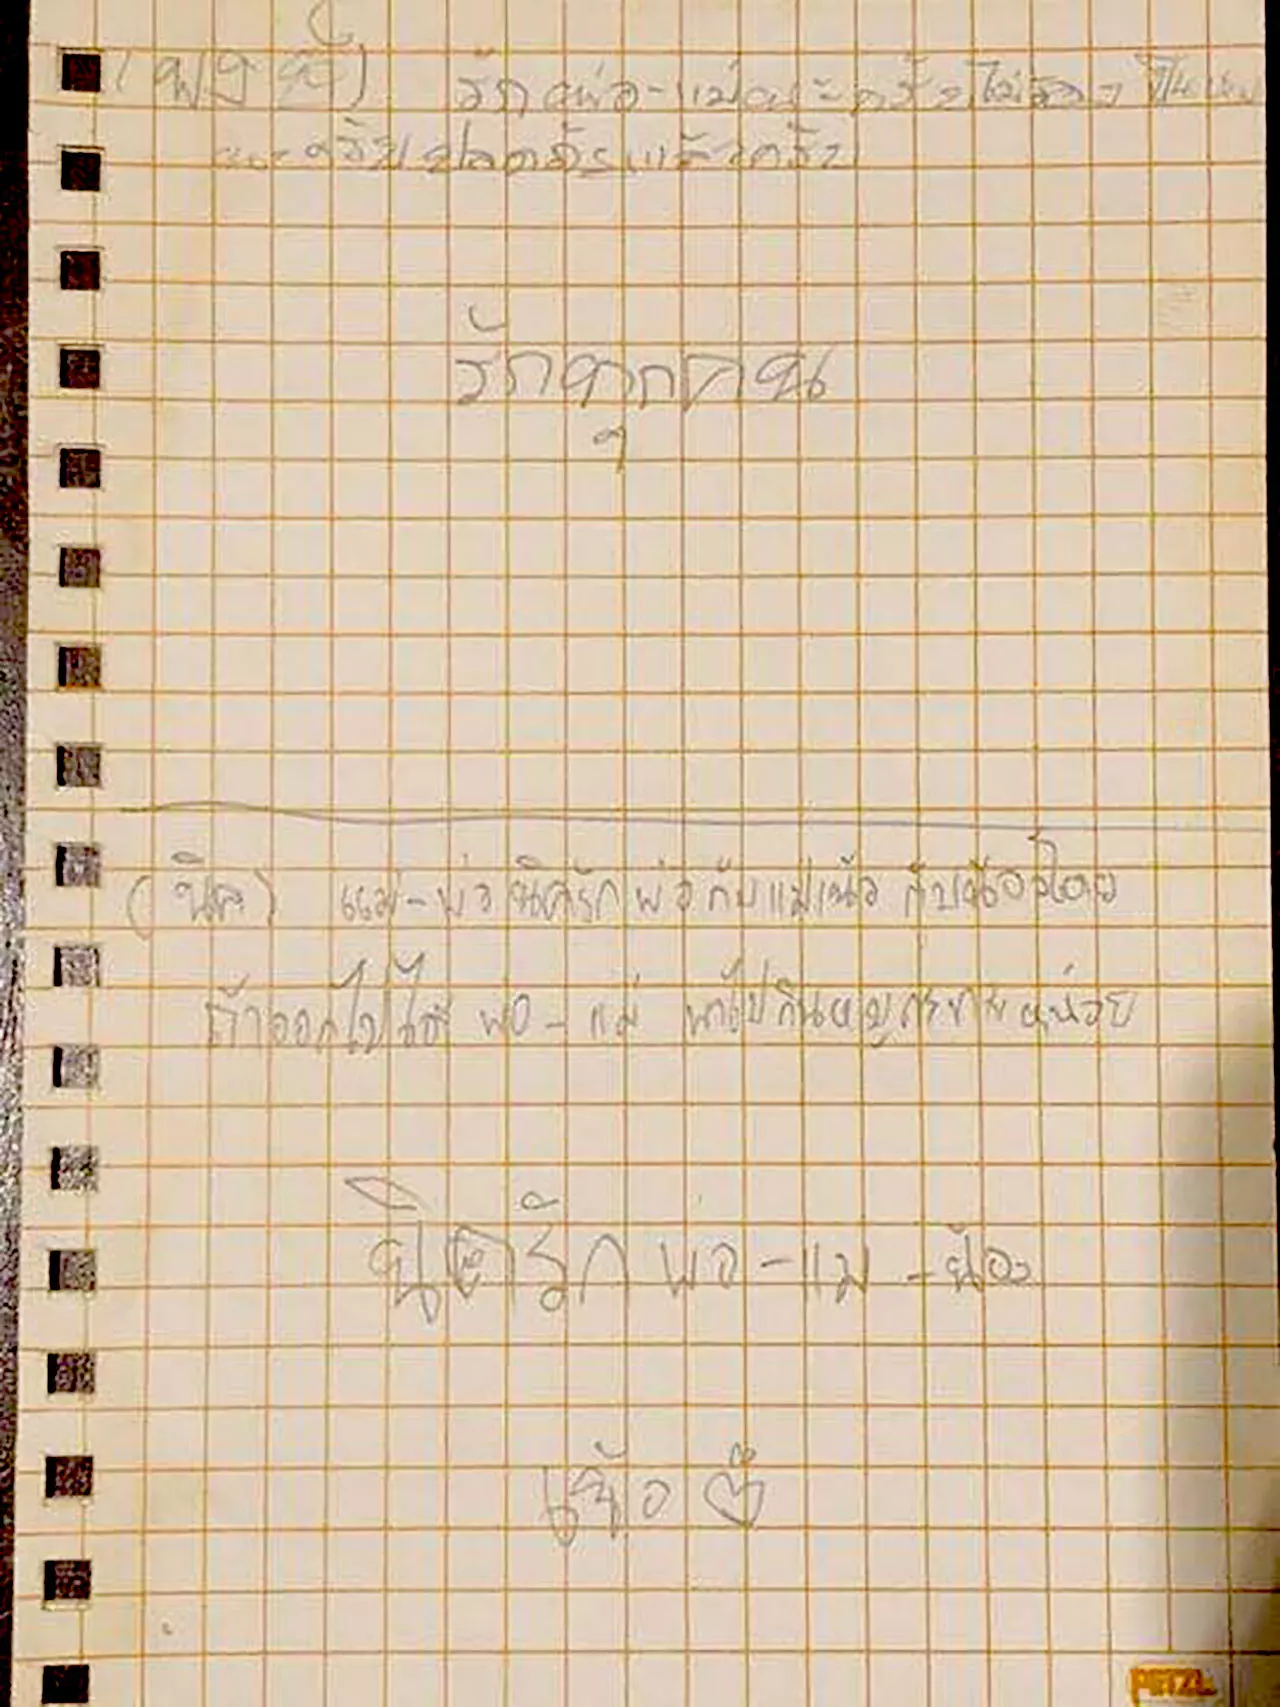 รักพ่อ-แม่นะครับไม่ต้อง
นะครับปลอดภัยแล้วครับ
รักทุกคน
(นิค) แม่-พ่อนิครักพ่อกับแม่เน้อ กับน้องโตย
ถ้าออกไปได้ พ่อ-แม่ พาไปกินหมูกระทะหน่อย
นิครักพ่อ-แม่-น้อง
เน้อ
PETZL